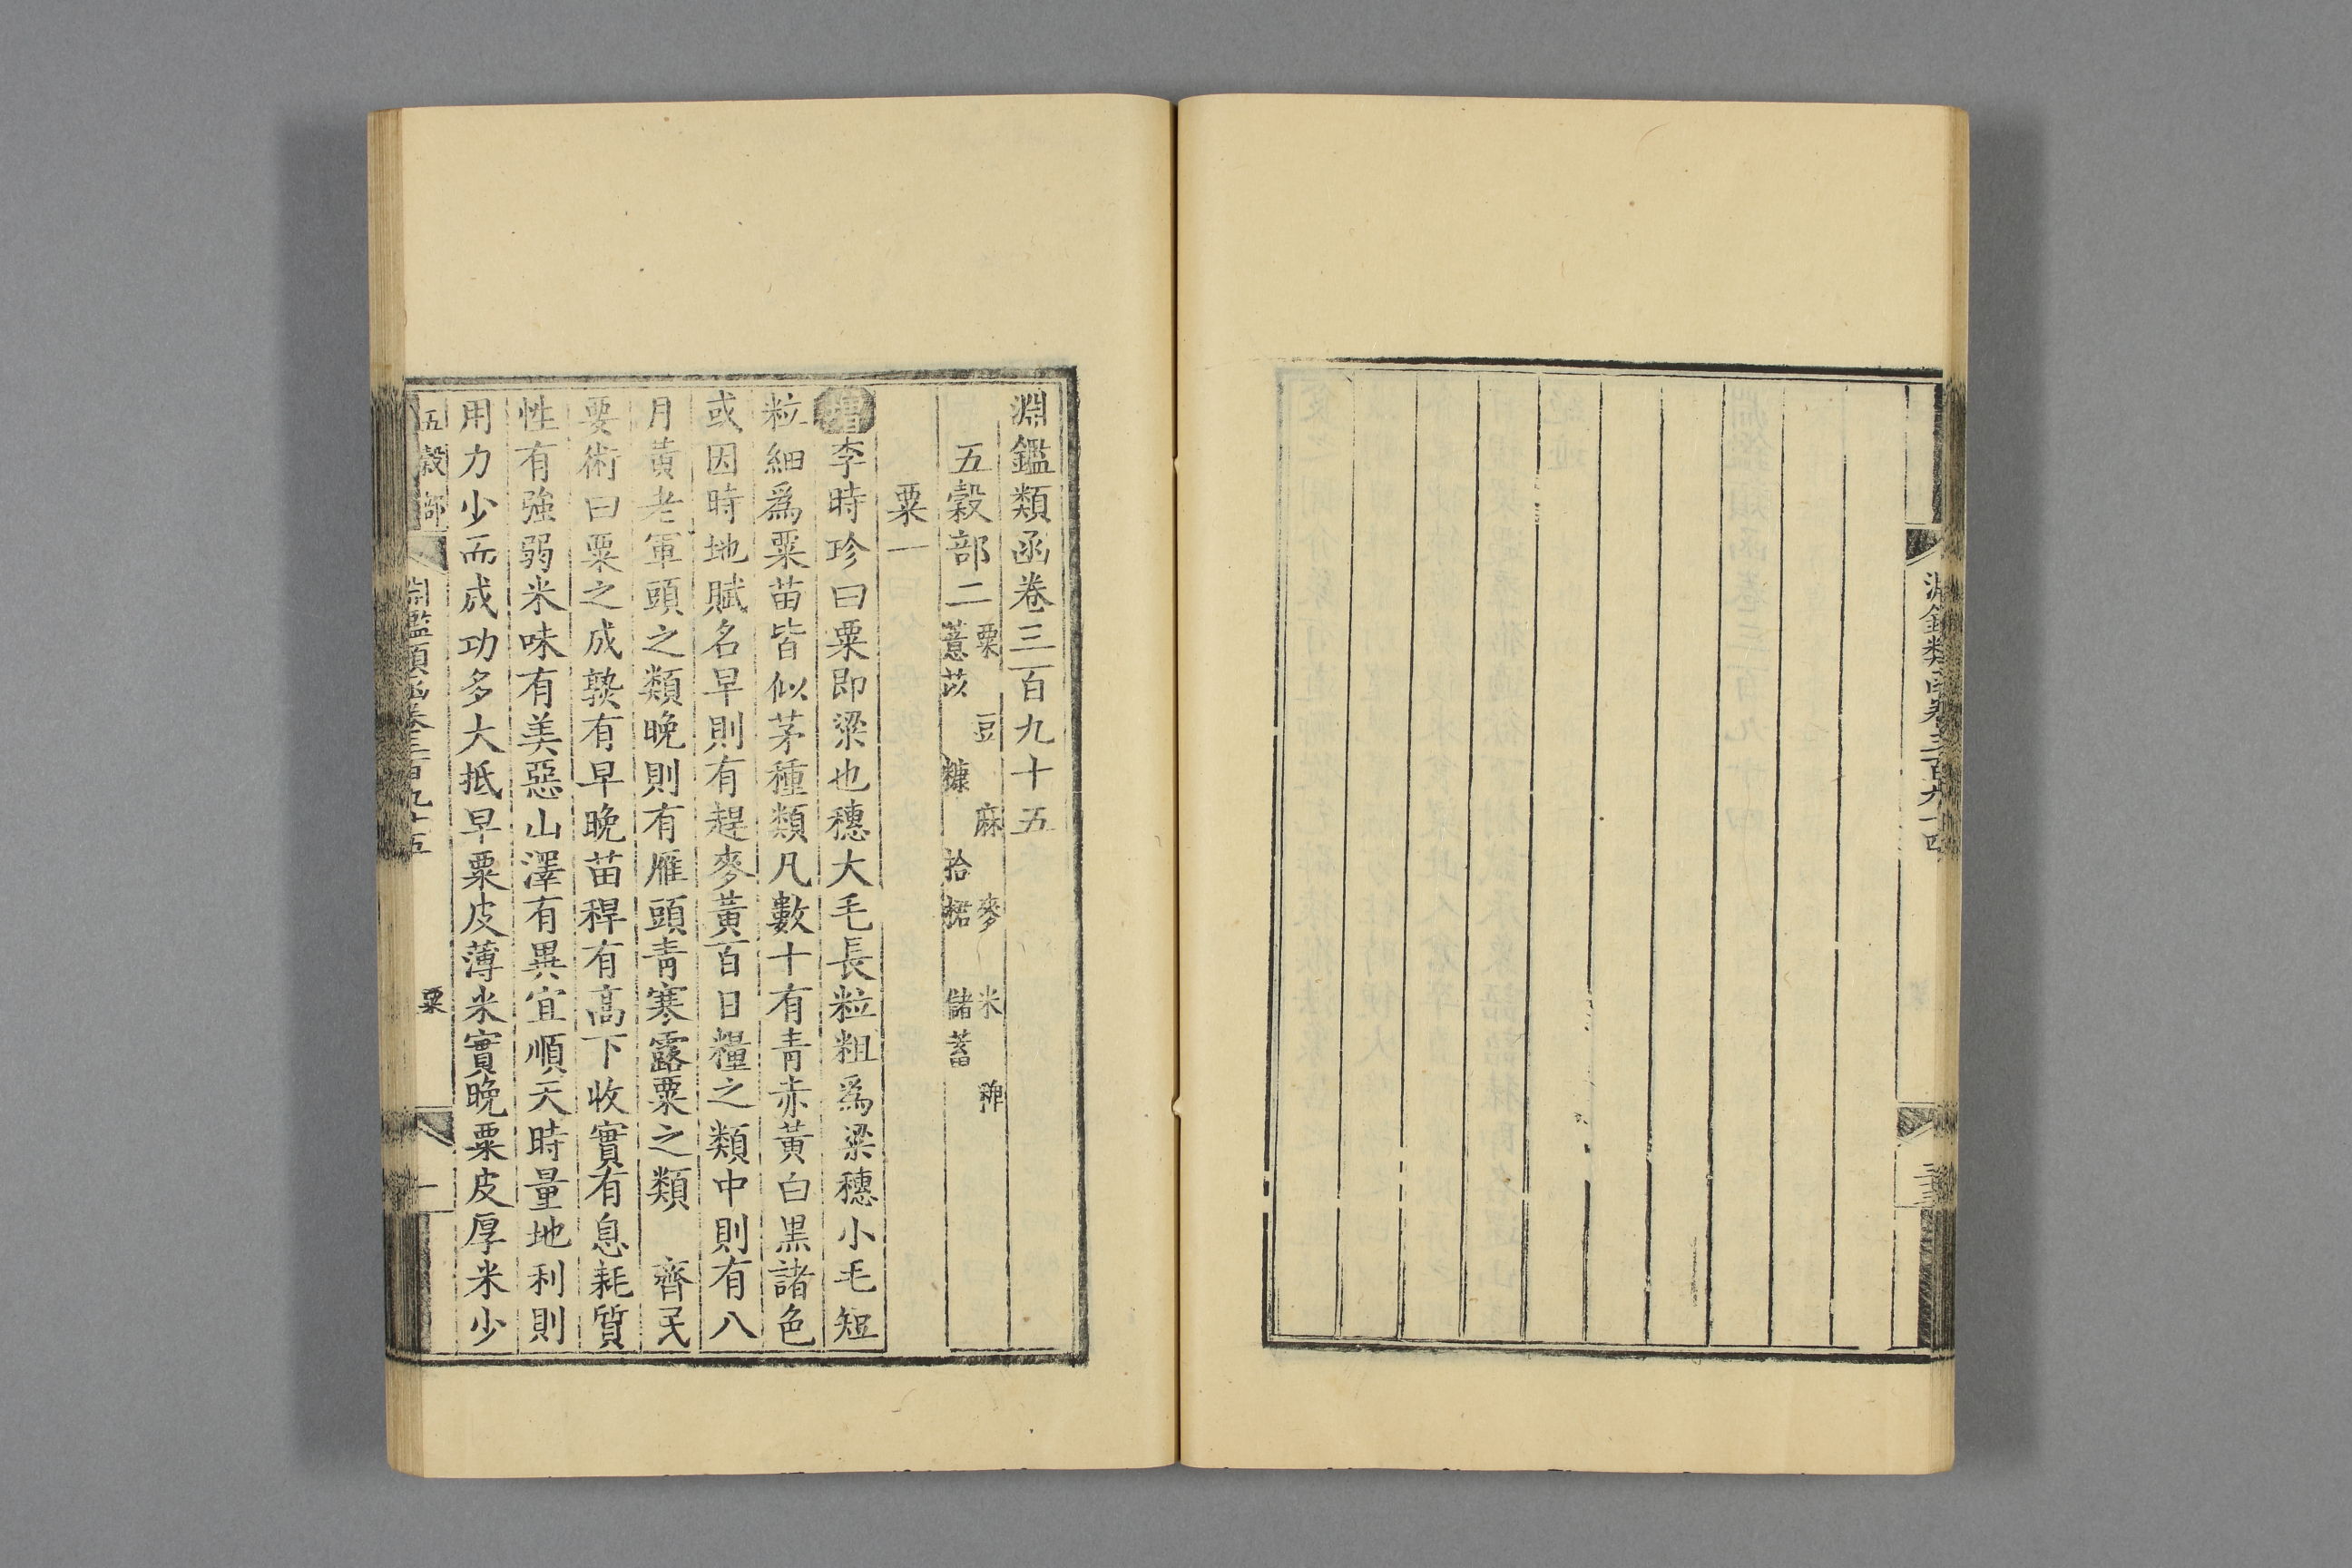 淵鑑類函卷三百九十四
淵鑑類函卷三百九十五
五穀部二 粟 豆 麻 麥 米 稗
薏苡 糠 拾穭 儲蓄
粟一
增李時珍曰粟即粱也穗大毛長粒粗爲粱穗小毛短
粒細爲粟苗皆似茅種類凡數十有青赤黃白黑諸色
或因時地賦名早則有趕麥黃百日糧之類中則有八
月黃老軍頭之類晚則有雁頭青寒露粟之類 齊民
要術曰粟之成孰有早晚苗稈有高下收實有息耗質
性有強弱米味有美惡山澤有異宜順天時量地利則
用力少而成功多大抵早粟皮薄米實晚粟皮厚米少
五穀部 淵鑑類函卷三百九十五 粟 一